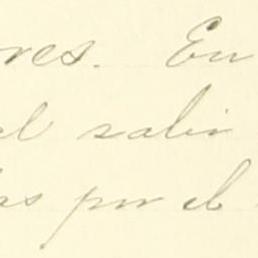 res. En
el salir
as por el